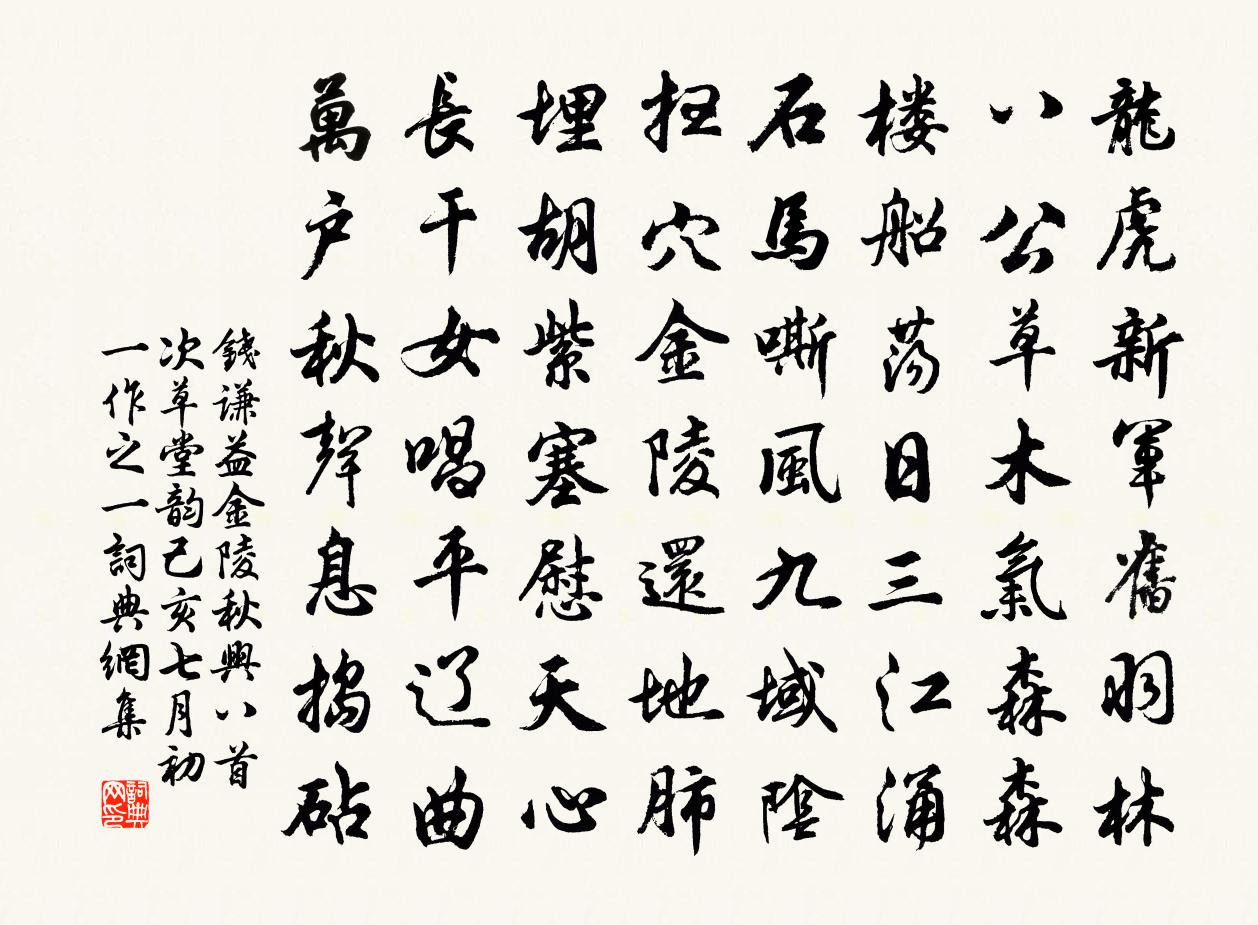 龍虎新軍舊羽林
八公草木氣森森
楼船荡日三江涌
石馬嘶風九域陰
扫穴金陵還地肺
埋胡紫塞慰天心
長干女唱平辽曲
萬户秋聲息搗砧
錢谦益金陵秋興八首
次草堂韵己亥七月初
一作之一詞典網集
詞典网印